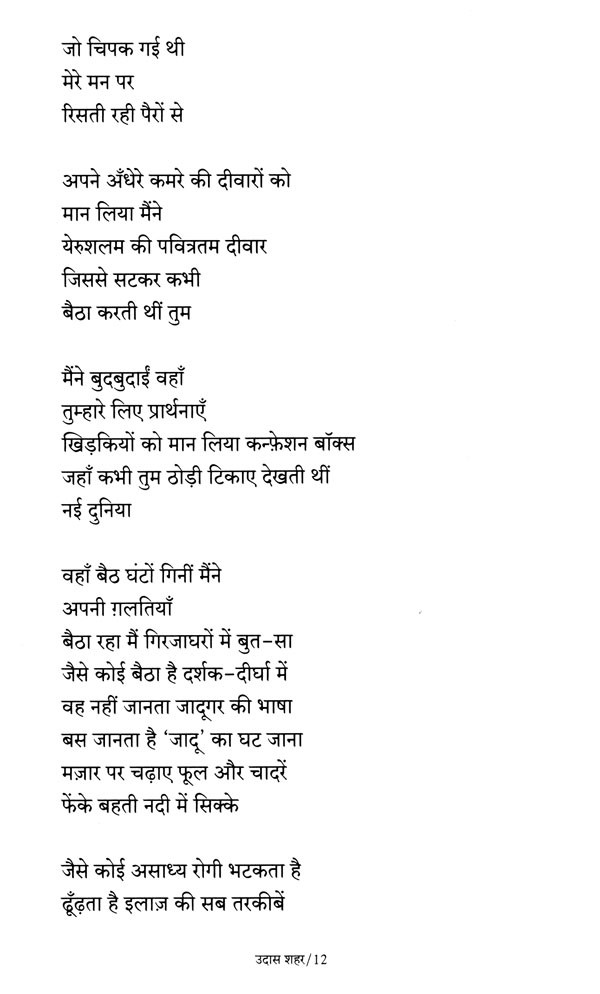 जो चिपक गई थी
मेरे मन पर
रिसती रही पैरों से
अपने अँधेरे कमरे की दीवारों को
मान लिया मैंने
येरुशलम की पवित्रतम दीवार
जिससे सटकर कभी
बैठा करती थीं तुम
मैंने बुदबुदाईं वहाँ
तुम्हारे लिए प्रार्थनाएँ
खिड़कियों को मान लिया कन्फ़ेशन बॉक्स
जहाँ कभी तुम ठोड़ी टिकाए देखती थीं
नई दुनिया
वहाँ बैठ घंटों गिनीं मैंने
अपनी ग़लतियाँ
बैठा रहा मैं गिरजाघरों में बुत-सा
जैसे कोई बैठा है दर्शक-दीर्घा में
वह नहीं जानता जादूगर की भाषा
बस जानता है ‘जादू’ का घट जाना
मज़ार पर चढ़ाए फूल और चादरें
फेंके बहती नदी में सिक्के
जैसे कोई असाध्य रोगी भटकता है
ढूँढ़ता है इलाज़ की सब तरकीबें
उदास शहर/12